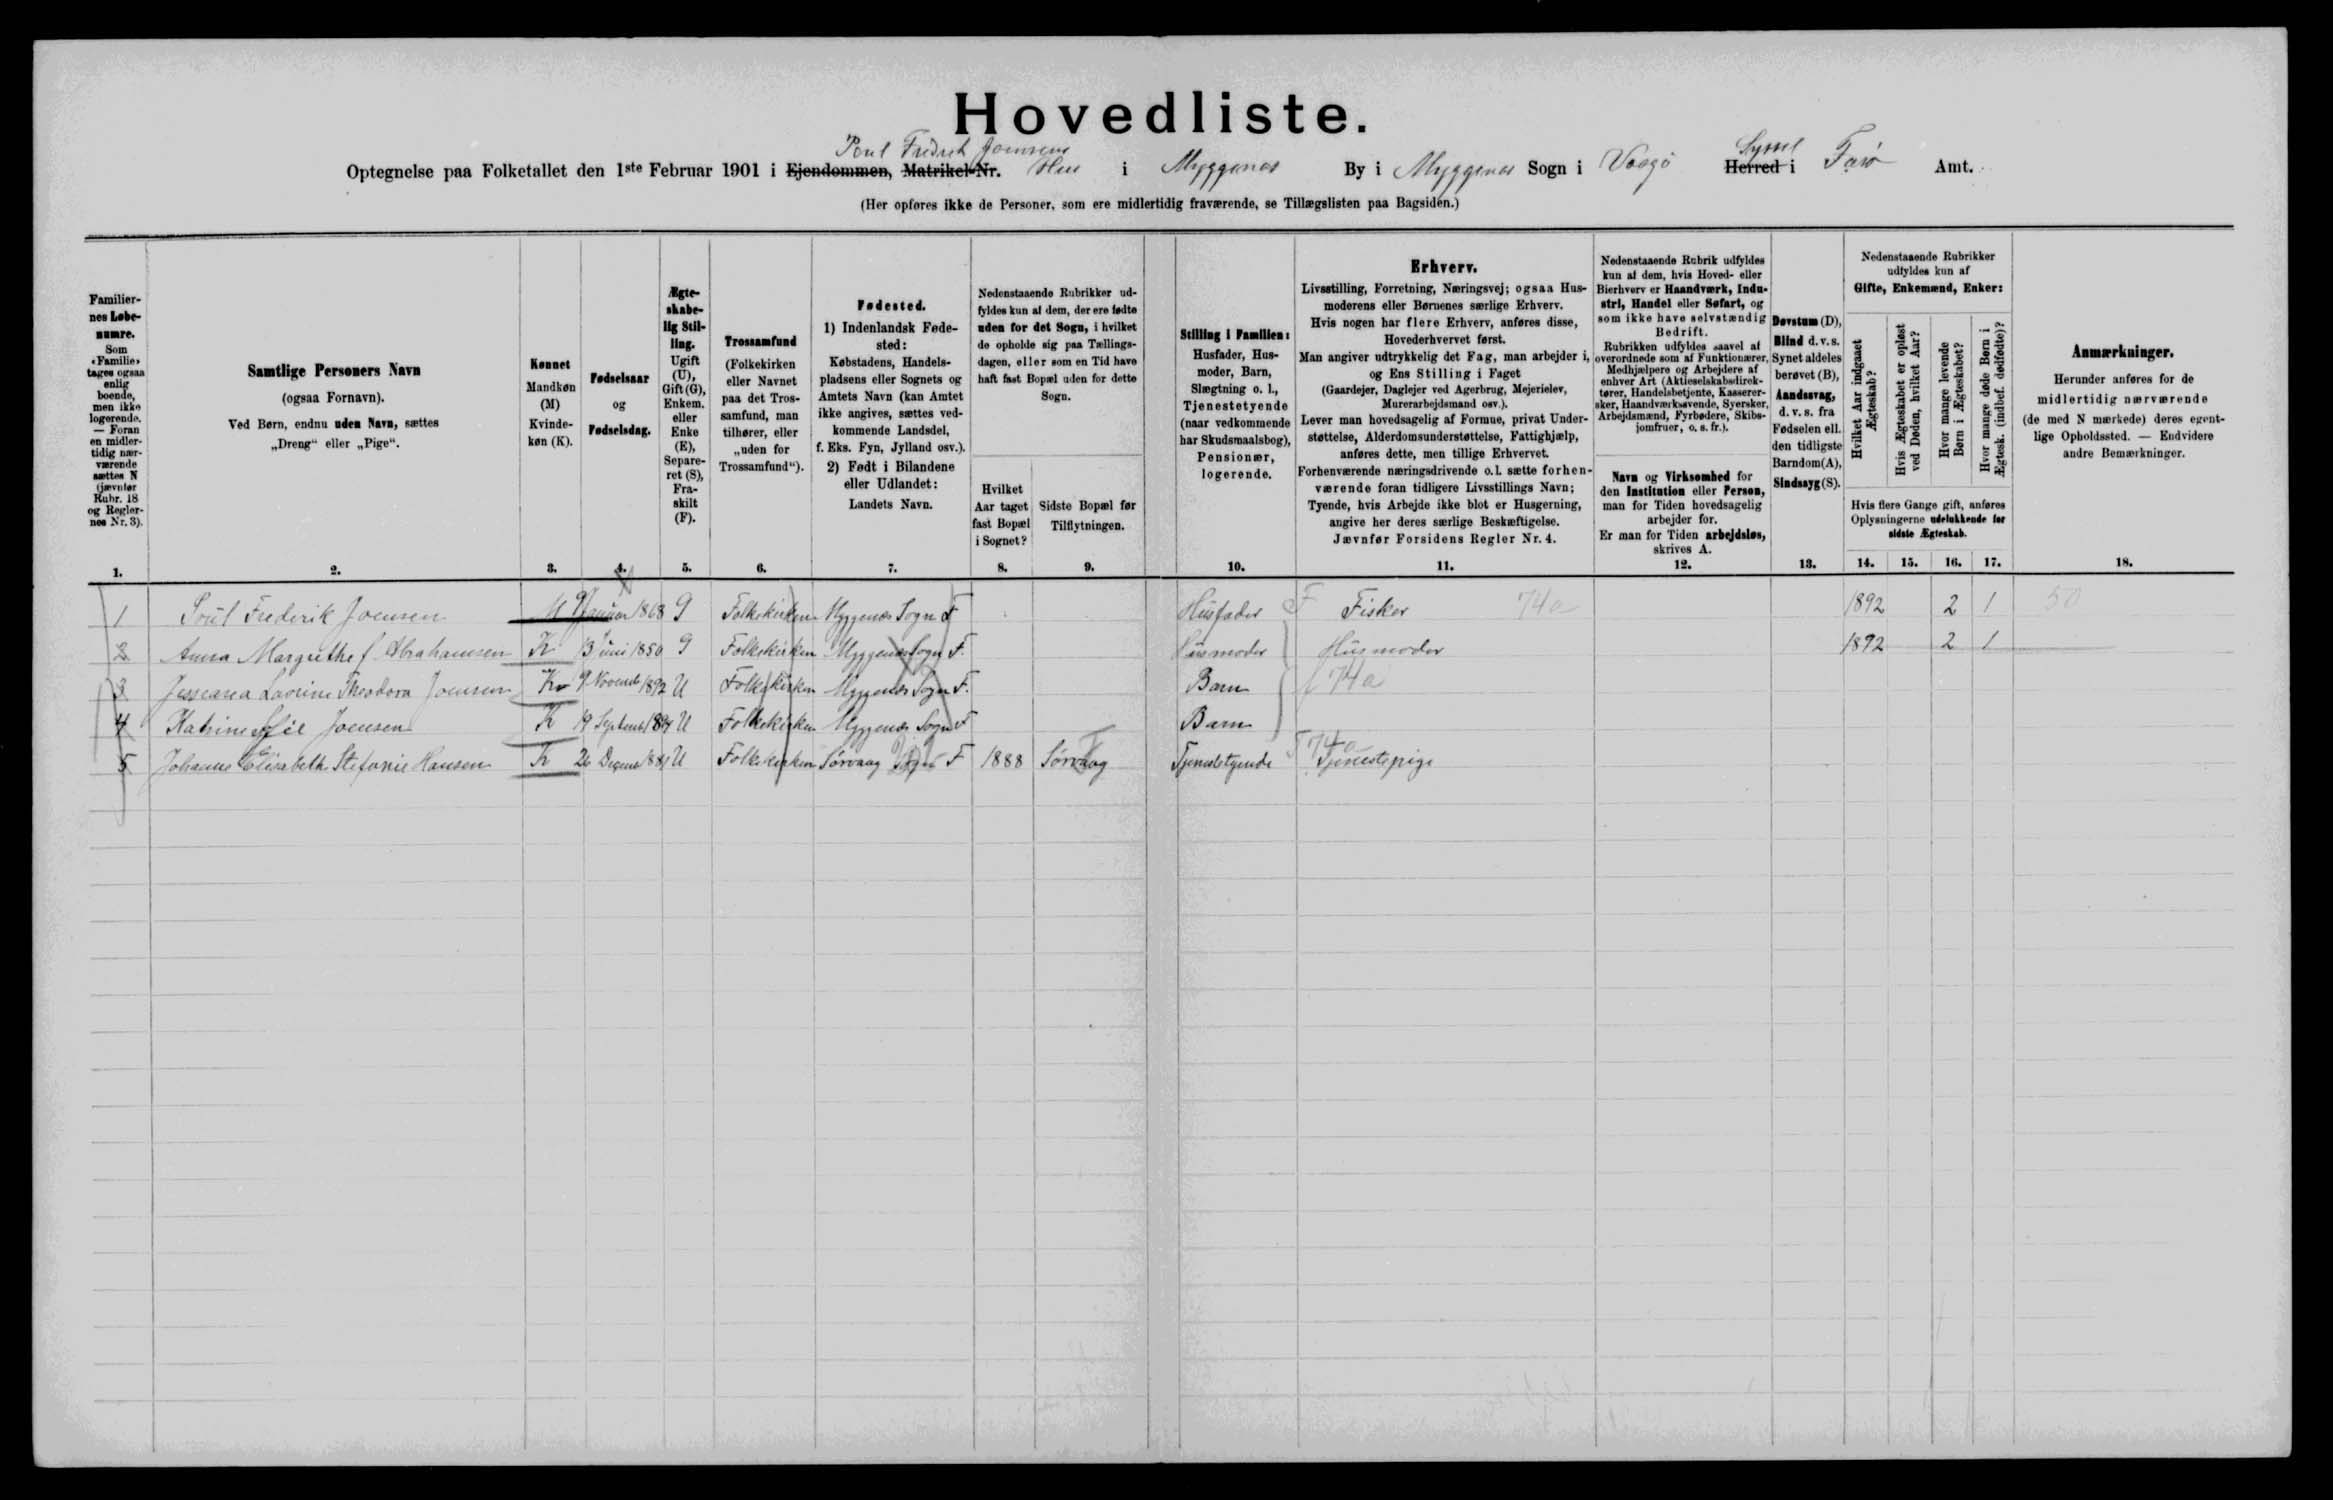 Hovedliste.
Poul Fredrik Joensens
Optegnelse paa Folketallet den 1ste Februar 1901 i Ejendommen, Matrikel-Nr. Hus i Myggenæs By i Myggenæs Sogn i Vaagø Herred i Syssel Færø Amt.
(Her opføres ikke de Personer, som ere midlertidig fraværende, se Tillægslisten paa Bagsiden.)
Familiernes Løbenumre.
Som «Familie» tages ogsaa enlig boende, men ikke logerende. — Foran en midlertidig nærværende sættes N (jævnfør Rubr. 18 og Reglernes Nr. 3).
Samtlige Personers Navn
(ogsaa Fornavn).
Ved Børn, endnu uden Navn, sættes
„Dreng“ eller „Pige“.
Kønnet
Mandkøn (M)
Kvindekøn (K).
Fødselsaar
og
Fødselsdag.
Ægteskabelig Stilling.
Ugift (U), Gift (G), Enkem. eller Enke (E), Separeret (S), Fraskilt (F).
Trossamfund
(Folkekirken eller Navnet paa det Trossamfund, man tilhører, eller „uden for Trossamfund“).
Fødested.
1) Indenlandsk Fødested:
Købstadens, Handelspladsens eller Sognets og Amtets Navn (kan Amtet ikke angives, sættes vedkommende Landsdel, f. Eks. Fyn, Jylland osv.).
2) Født i Bilandene eller Udlandet:
Landets Navn.
Nedenstaaende Rubrikker udfyldes kun af dem, der ere fødte uden for det Sogn, i hvilket de opholde sig paa Tællingsdagen, eller som en Tid have haft fast Bopæl uden for dette Sogn.
Hvilket Aar taget fast Bopæl i Sognet?
Sidste Bopæl før Tilflytningen.
Stilling i Familien:
Husfader, Husmoder, Barn, Slægtning o. l., Tjenestetyende (naar vedkommende har Skudsmaalsbog), Pensionær, logerende.
Erhverv.
Livsstilling, Forretning, Næringsvej; ogsaa Husmoderens eller Børnenes særlige Erhverv.
Hvis nogen har flere Erhverv, anføres disse, Hovederhvervet først.
Man angiver udtrykkelig det Fag, man arbejder i, og Ens Stilling i Faget
(Gaardejer, Daglejer ved Agerbrug, Mejerielev, Murerarbejdsmand osv.).
Lever man hovedsagelig af Formue, privat Understøttelse, Alderdomsunderstøttelse, Fattighjælp, anføres dette, men tillige Erhvervet.
Forhenværende næringsdrivende o.l. sætte forhenværende foran tidligere Livsstillings Navn;
Tyende, hvis Arbejde ikke blot er Husgerning, angive her deres særlige Beskæftigelse.
Jævnfør Forsidens Regler Nr. 4.
Nedenstaaende Rubrik udfyldes kun af dem, hvis Hoved- eller Bierhverv er Haandværk, Industri, Handel eller Søfart, og som ikke have selvstændig Bedrift.
Rubrikken udfyldes saavel af overordnede som af Funktionærer, Medhjælpere og Arbejdere af enhver Art (Aktieselskabsdirektører, Handelsbetjente, Kasserersker, Haandværkssvende, Syersker, Arbejdsmænd, Fyrbødere, Skibsjomfruer, o. s. fr.).
Navn og Virksomhed for den Institution eller Person, man for Tiden hovedsagelig arbejder for.
Er man for Tiden arbejdsløs, skrives A.
Døvstum (D), Blind d. v. s. Synet aldeles berøvet (B), Aandssvag, d. v. s. fra Fødselen ell. den tidligste Barndom (A), Sindssyg (S).
Nedenstaaende Rubrikker udfyldes kun af
Gifte, Enkemænd, Enker:
Hvilket Aar indgaaet Ægteskab?
Hvis Ægteskabet er opløst ved Døden, hvilket Aar?
Hvor mange levende Børn i Ægteskabet?
Hvor mange døde Børn i Ægtesk. (indbef. dødfødte)?
Hvis flere Gange gift, anføres Oplysningerne udelukkende for sidste Ægteskab.
Anmærkninger.
Herunder anføres for de midlertidig nærværende (de med N mærkede) deres egentlige Opholdssted. — Endvidere andre Bemærkninger.
1. 2. 3. 4. 5. 6. 7. 8. 9. 10. 11. 12. 13. 14. 15. 16. 17. 18.
1 Poul Frederik Joensen M 9 Januar 1868 G Folkekirken Myggenæs Sogn F Husfader F Fisker 74a 1892 2 1 50
2 Anna Margrethe f Abrahamsen K 13 Juni 1850 G Folkekirken Myggenæs Sogn F. Husmoder Husmoder 1892 2 1
3 Lavrine Theodora Joensen Kv 9 Novemb 1892 U Folkekirken Myggenæs Sogn F. Barn 74a
4 Katrine Joensen K 19 Septemb U Folkekirken Myggenæs Sogn F Barn
5 Johanne Elisabeth Stefanie Hansen K 26 U Folkekirken Sørvaag Sogn F 1888 Sørvaag Tjenestetyende 74a Tjenestepige